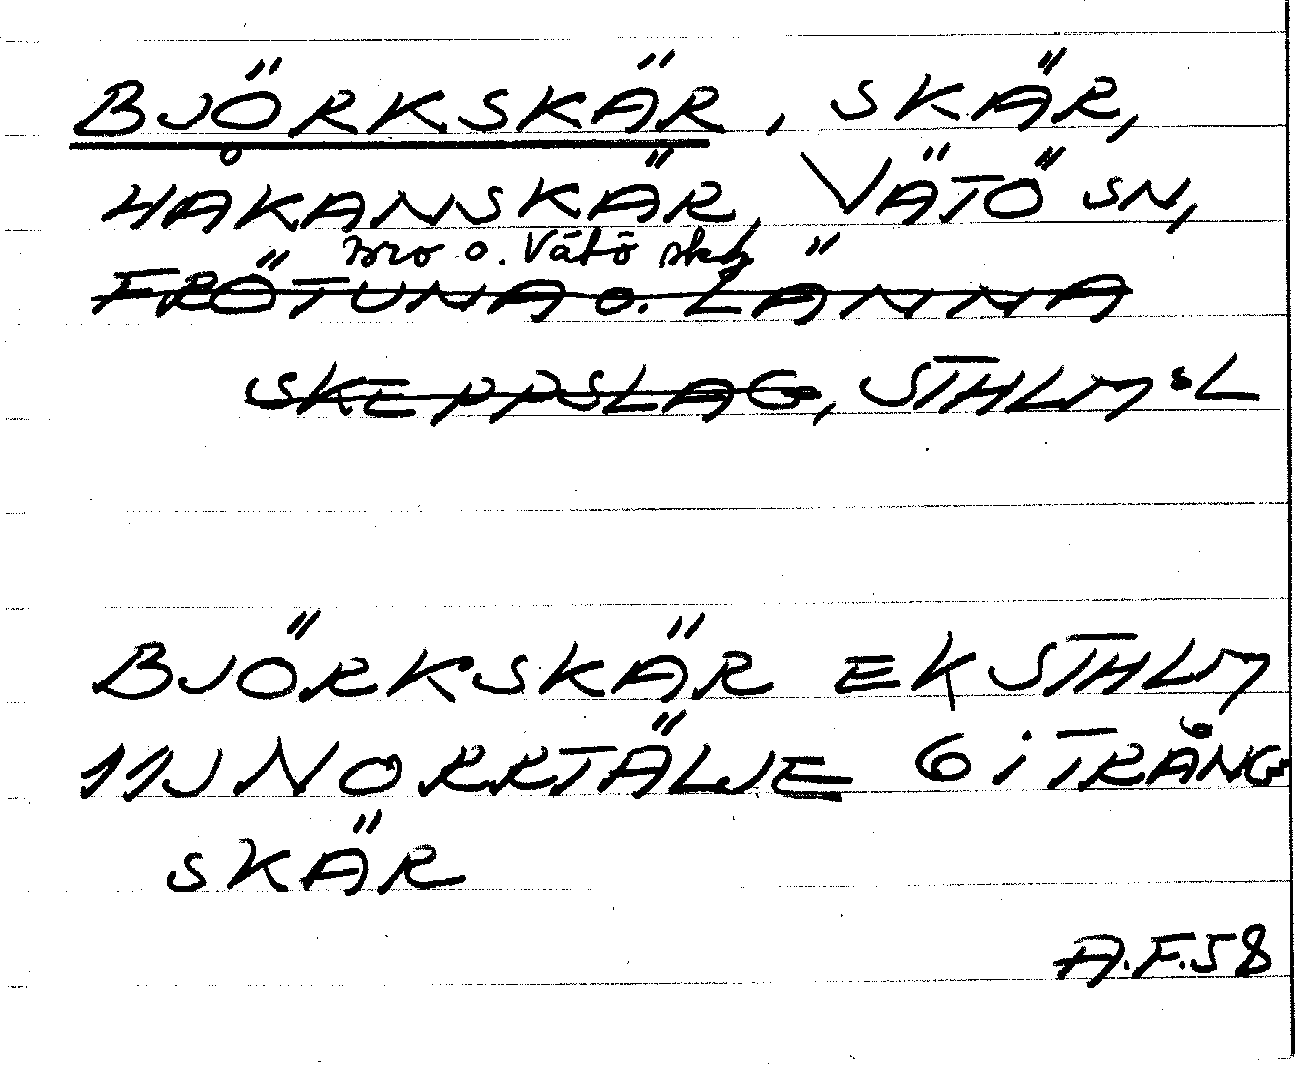 BJÖRKSKÄR, SKÄR,
HÅKANSKÄR, VÄTÖ SN,
Bro o. Vätö skg
FRÖTUNA o. LÄNNA
SKEPPSLAG, STHLM:SL
BJÖRKSKÄR EK STHLM
11J NORRTÄLJE 6 i TRÅNG
SKÄR
A.F.58